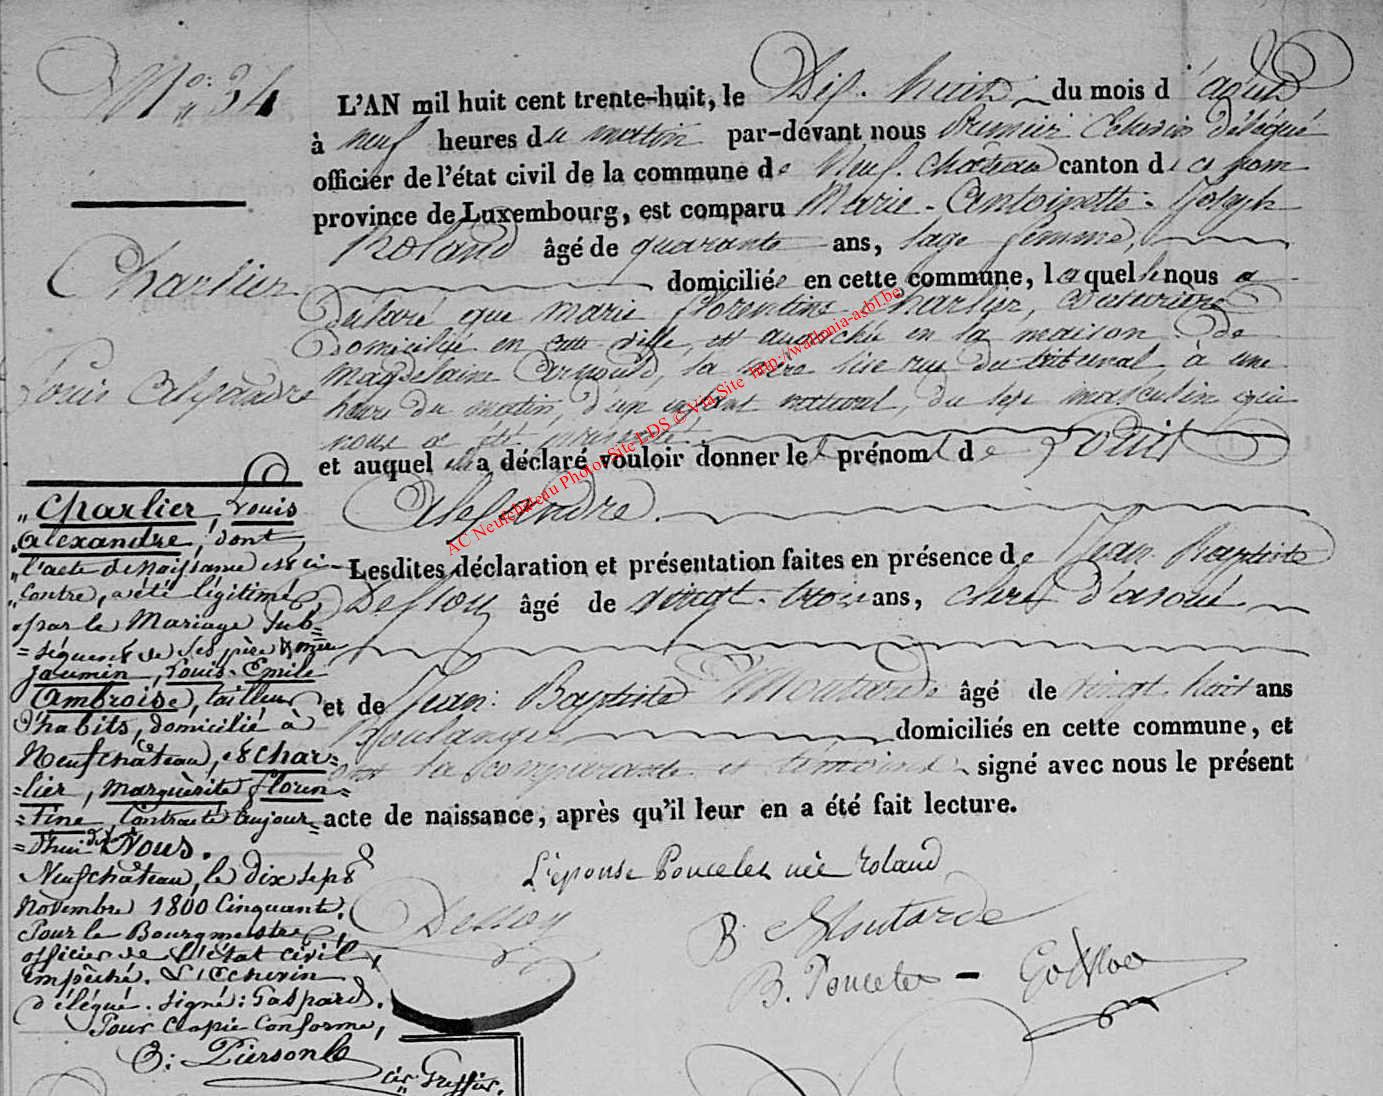 N° 34
Charlier
Louis Alexandre
L'AN mil huit cent trente-huit, le Dix-huit du mois d'août
à neuf heures du matin par-devant nous premier Echevin délégué
officier de l'état civil de la commune de Neufchâteau canton de ce nom
province de Luxembourg, est comparu Marie-Antoinette-Joseph
Roland âgé de quarante ans, sage femme,
domiciliée en cette commune, laquelle nous a
Déclaré que Marie Florentine Charlier, couturière
Domiciliée en cette ville, est accouchée en la maison de
Magdelaine Arnould, sa mère sise rue du tribunal, à une
heure du matin, d'un enfant naturel, du sexe masculin qui
nous a été présenté
et auquel elle a déclaré vouloir donner le prénom de Louis
Alexandre.
Lesdites déclaration et présentation faites en présence de Jean Baptiste
Dessoy âgé de vingt-trois ans, clerc d'avoué
et de Jean Baptiste Moutarde âgé de vingt-huit ans
Boulanger domiciliés en cette commune, et
ont la comparante et témoins signé avec nous le présent
acte de naissance, après qu'il leur en a été fait lecture.
L'épouse Poncelet née roland
Dessoy
B Moutarde
B. Poncelet -
"Charlier, Louis
"alexandre, dont
"l'acte de Naissance est ci-
"Contre, a été légitimé
"par le Mariage Sub-
=séquent de ses père & mère
jaumin, Louis-Emile
Ambroise, tailleur
d'habits, domicilié à
Neufchâteau, et Char=
=lier, Marguérite Floren=
=tine Contracté aujour=
=d'hui dvt Nous.
Neufchâteau, le dix sept
Novembre 1800 Cinquante.
Pour le Bourgmestre,
officier de l'état civil,
empêché. L'Echevin
délégué. signé: Gaspard.
Pour Copie Conforme,
Piersonle
Greffier.
AC Neufchâteau Photo Site LDS © Via Site http://wallonia-asbl.be